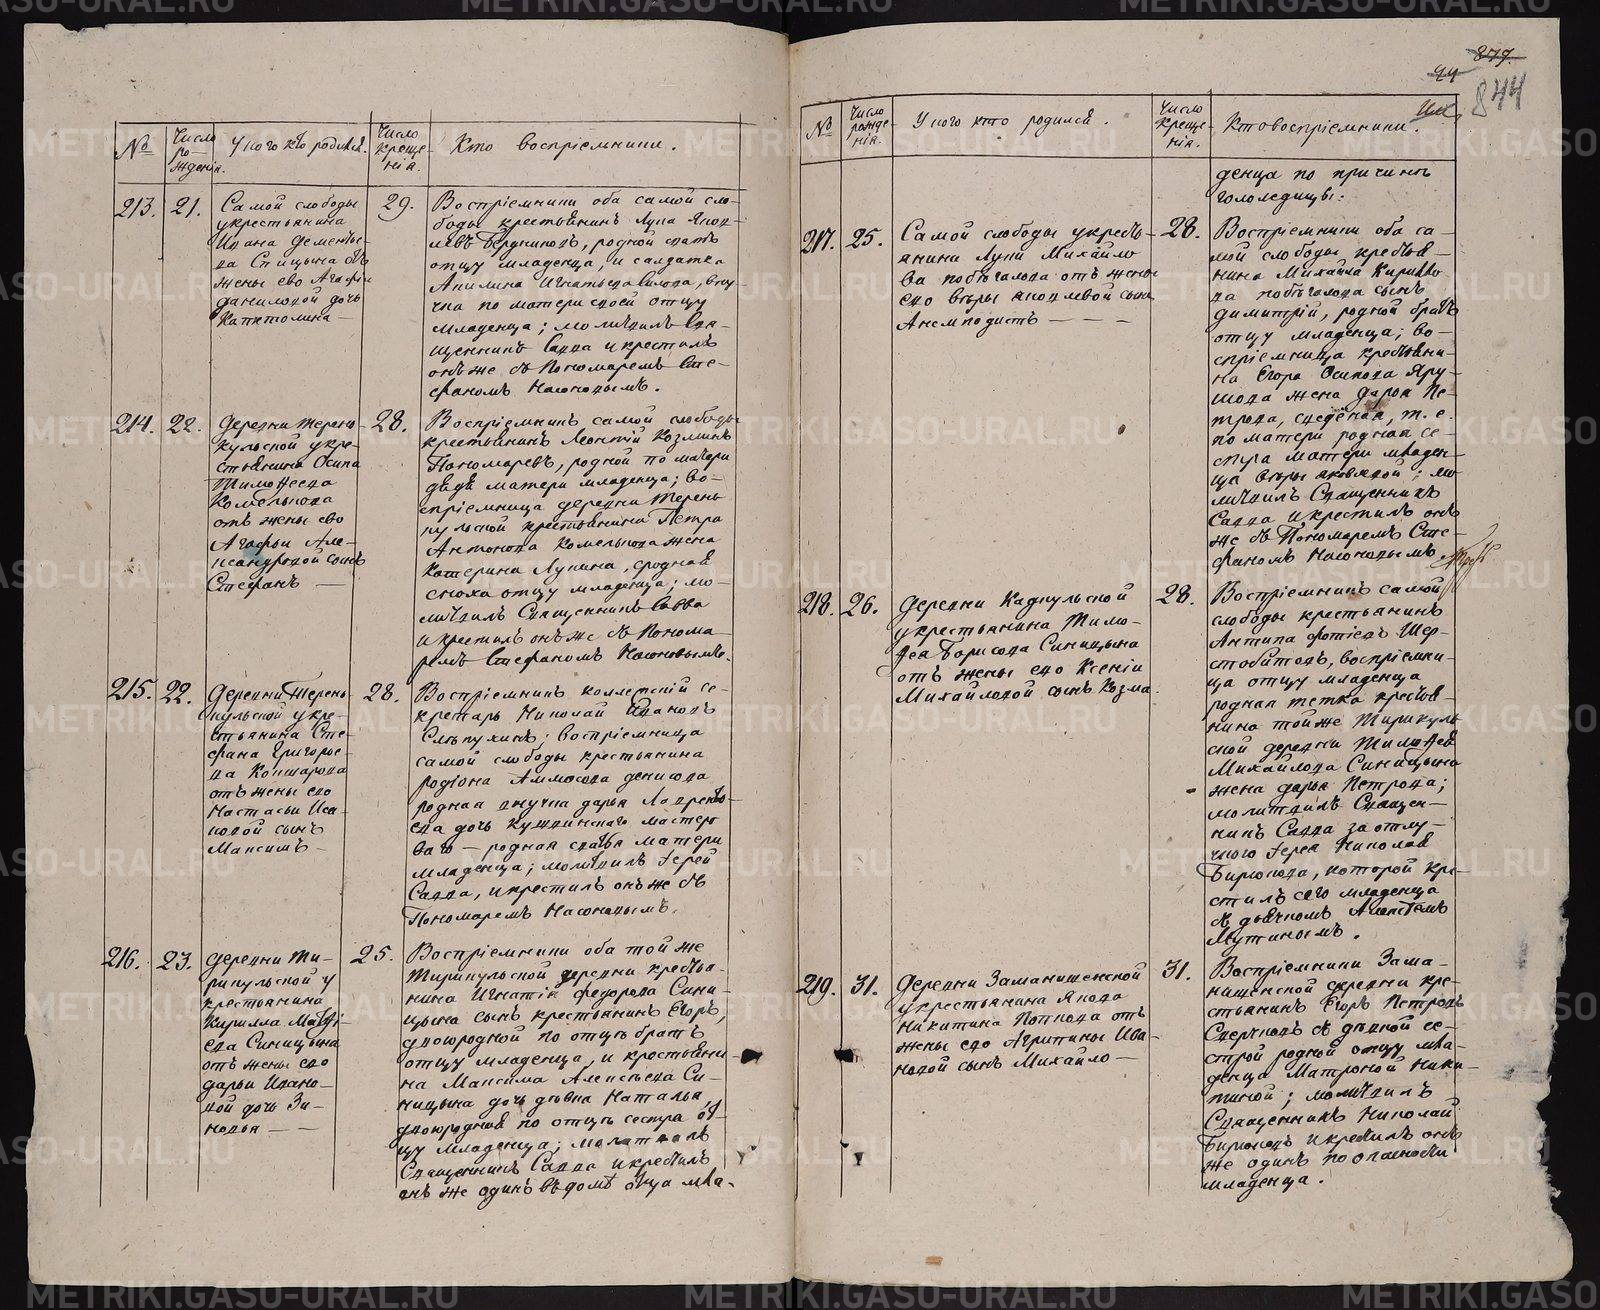 877.
44
844
№
Число рожденія.
У кого кто родился.
Число крещенія.
Кто воспріемники.
213. 21.
Самой слободы
у крестьянина
Ивана Дементье-
ва Спицына отъ
жены его Агафьи
Даниловой дочь
Капитолина —
29.
Воспріемники оба самой сло-
боды крестьянинъ Лука Яков-
левъ Бердниковъ, родной сватъ
отцу младенца, и салдатка
Акилина Игнатьева
по матери своей отцу
младенца; молитвилъ Свя-
щенникъ Савва и крестилъ
онъ же съ Пономаремъ Сте-
фаномъ Насоновымъ.
214. 22.
Деревни Терен-
кульской у кре-
стьянина Осипа
Тимофеева
Комелькова
отъ жены его
Агафьи Але-
ксандровой сынъ
Стефанъ —
28.
Воспріемникъ самой слободы
крестьянинъ Леонтій Козминъ
Пономаревъ, родной по матери
дядя матери младенца; во-
спріемница деревни Терен-
кульской крестьянина Петра
Антонова Комелькова жена
Катерина Лукина, сродная
сноха отцу младенца; мо-
литвилъ Священникъ Савва
и крестилъ онъ же съ Понома-
ремъ Стефаномъ Насоновымъ.
215. 22.
Деревни Терен-
кульской у кре-
стьянина Сте-
фана Григорье-
ва Кошкарова
отъ жены его
Настасьи Иса-
ковой сынъ
Максимъ —
28.
Воспріемникъ коллежскій се-
кретарь Николай Ивановъ
Слепухинъ; воспріемница
самой слободы крестьянина
Родіона Аммосова Денисова
родная внучка Дарья Лаврентье-
ва дочь мастеро-
ваго — родная сватья матери
младенца; молитвилъ Іерей
Савва, и крестилъ онъ же съ
Пономаремъ Насоновымъ.
216. 23.
Деревни Ти-
рикульской у
крестьянина
Кирилла Матфі-
ева Синицына
отъ жены его
Дарьи Ивано-
вой дочь Зи-
новья — —
25.
Воспріемники оба той же
Тирикульской деревни крестья-
нина Игнатія Федорова Сини-
цына сынъ крестьянинъ Егоръ,
двоюродной по отцу братъ
отцу младенца, и крестьяни-
на Максима Алексеева Си-
ницына дочь девка Наталья,
двоюродная по отцу сестра от-
цу младенца; молитвилъ
Священникъ Савва и крестилъ
онъ же одинъ въ доме отца мла-
№
Число рожденія.
У кого кто родился.
Число крещенія.
Кто воспріемники.
денца по причине
гололедицы:
217. 25.
Самой слободы у кресть-
янина Луки Михайло-
ва Побегалова отъ жены
его Веры Яковлевой сынъ
Анемподистъ — — —
28.
Воспріемники оба са-
мой слободы крестья-
нина Михайла Кирилло-
ва Побегалова сынъ
Димитрій, родной братъ
отцу младенца; во-
спріемница крестьяни-
на Егора Осипова Яру-
шова жена Дарья Пе-
трова, сведеная, т. е.
по матери родная се-
стра матери младен-
ца Веры Яковлевой; мо-
литвилъ Священникъ
Савва и крестилъ онъ
же съ Пономаремъ Сте-
фаномъ Насоновымъ.
218. 26.
Деревни Кадкульской
у крестьянина Тимо-
фея Борисова Синицына
отъ жены его Ксеніи
Михайловой сынъ Козма.
28.
Воспріемникъ самой
слободы крестьянинъ
Антипа Фотіевъ Шер-
стобитовъ, воспріемни-
ца отцу младенца
родная тетка крестья-
нина той же Тирикуль-
ской деревни Тимофея
Михайлова Синицына
жена Дарья Петрова;
молитвилъ Священ-
никъ Савва за отлу-
чкого Іерея Николая
Бирюкова, которой кре-
стилъ сего младенца
съ дьячкомъ Алексеемъ
Мутинымъ.
219. 31.
Деревни Заманишенской
у крестьянина Якова
Никитина Попкова отъ
жены его Агрипины Ива-
новой сынъ Михайло —
31.
Воспріемники Зама-
нишенской деревни кре-
стьянинъ Егоръ Петровъ
Сверковъ съ девкой се-
строй родной отцу мла-
денца Матроной Ники-
тиной; молитвилъ
Священникъ Николай
Бирюковъ и крестилъ онъ
же одинъ по опасности
младенца.